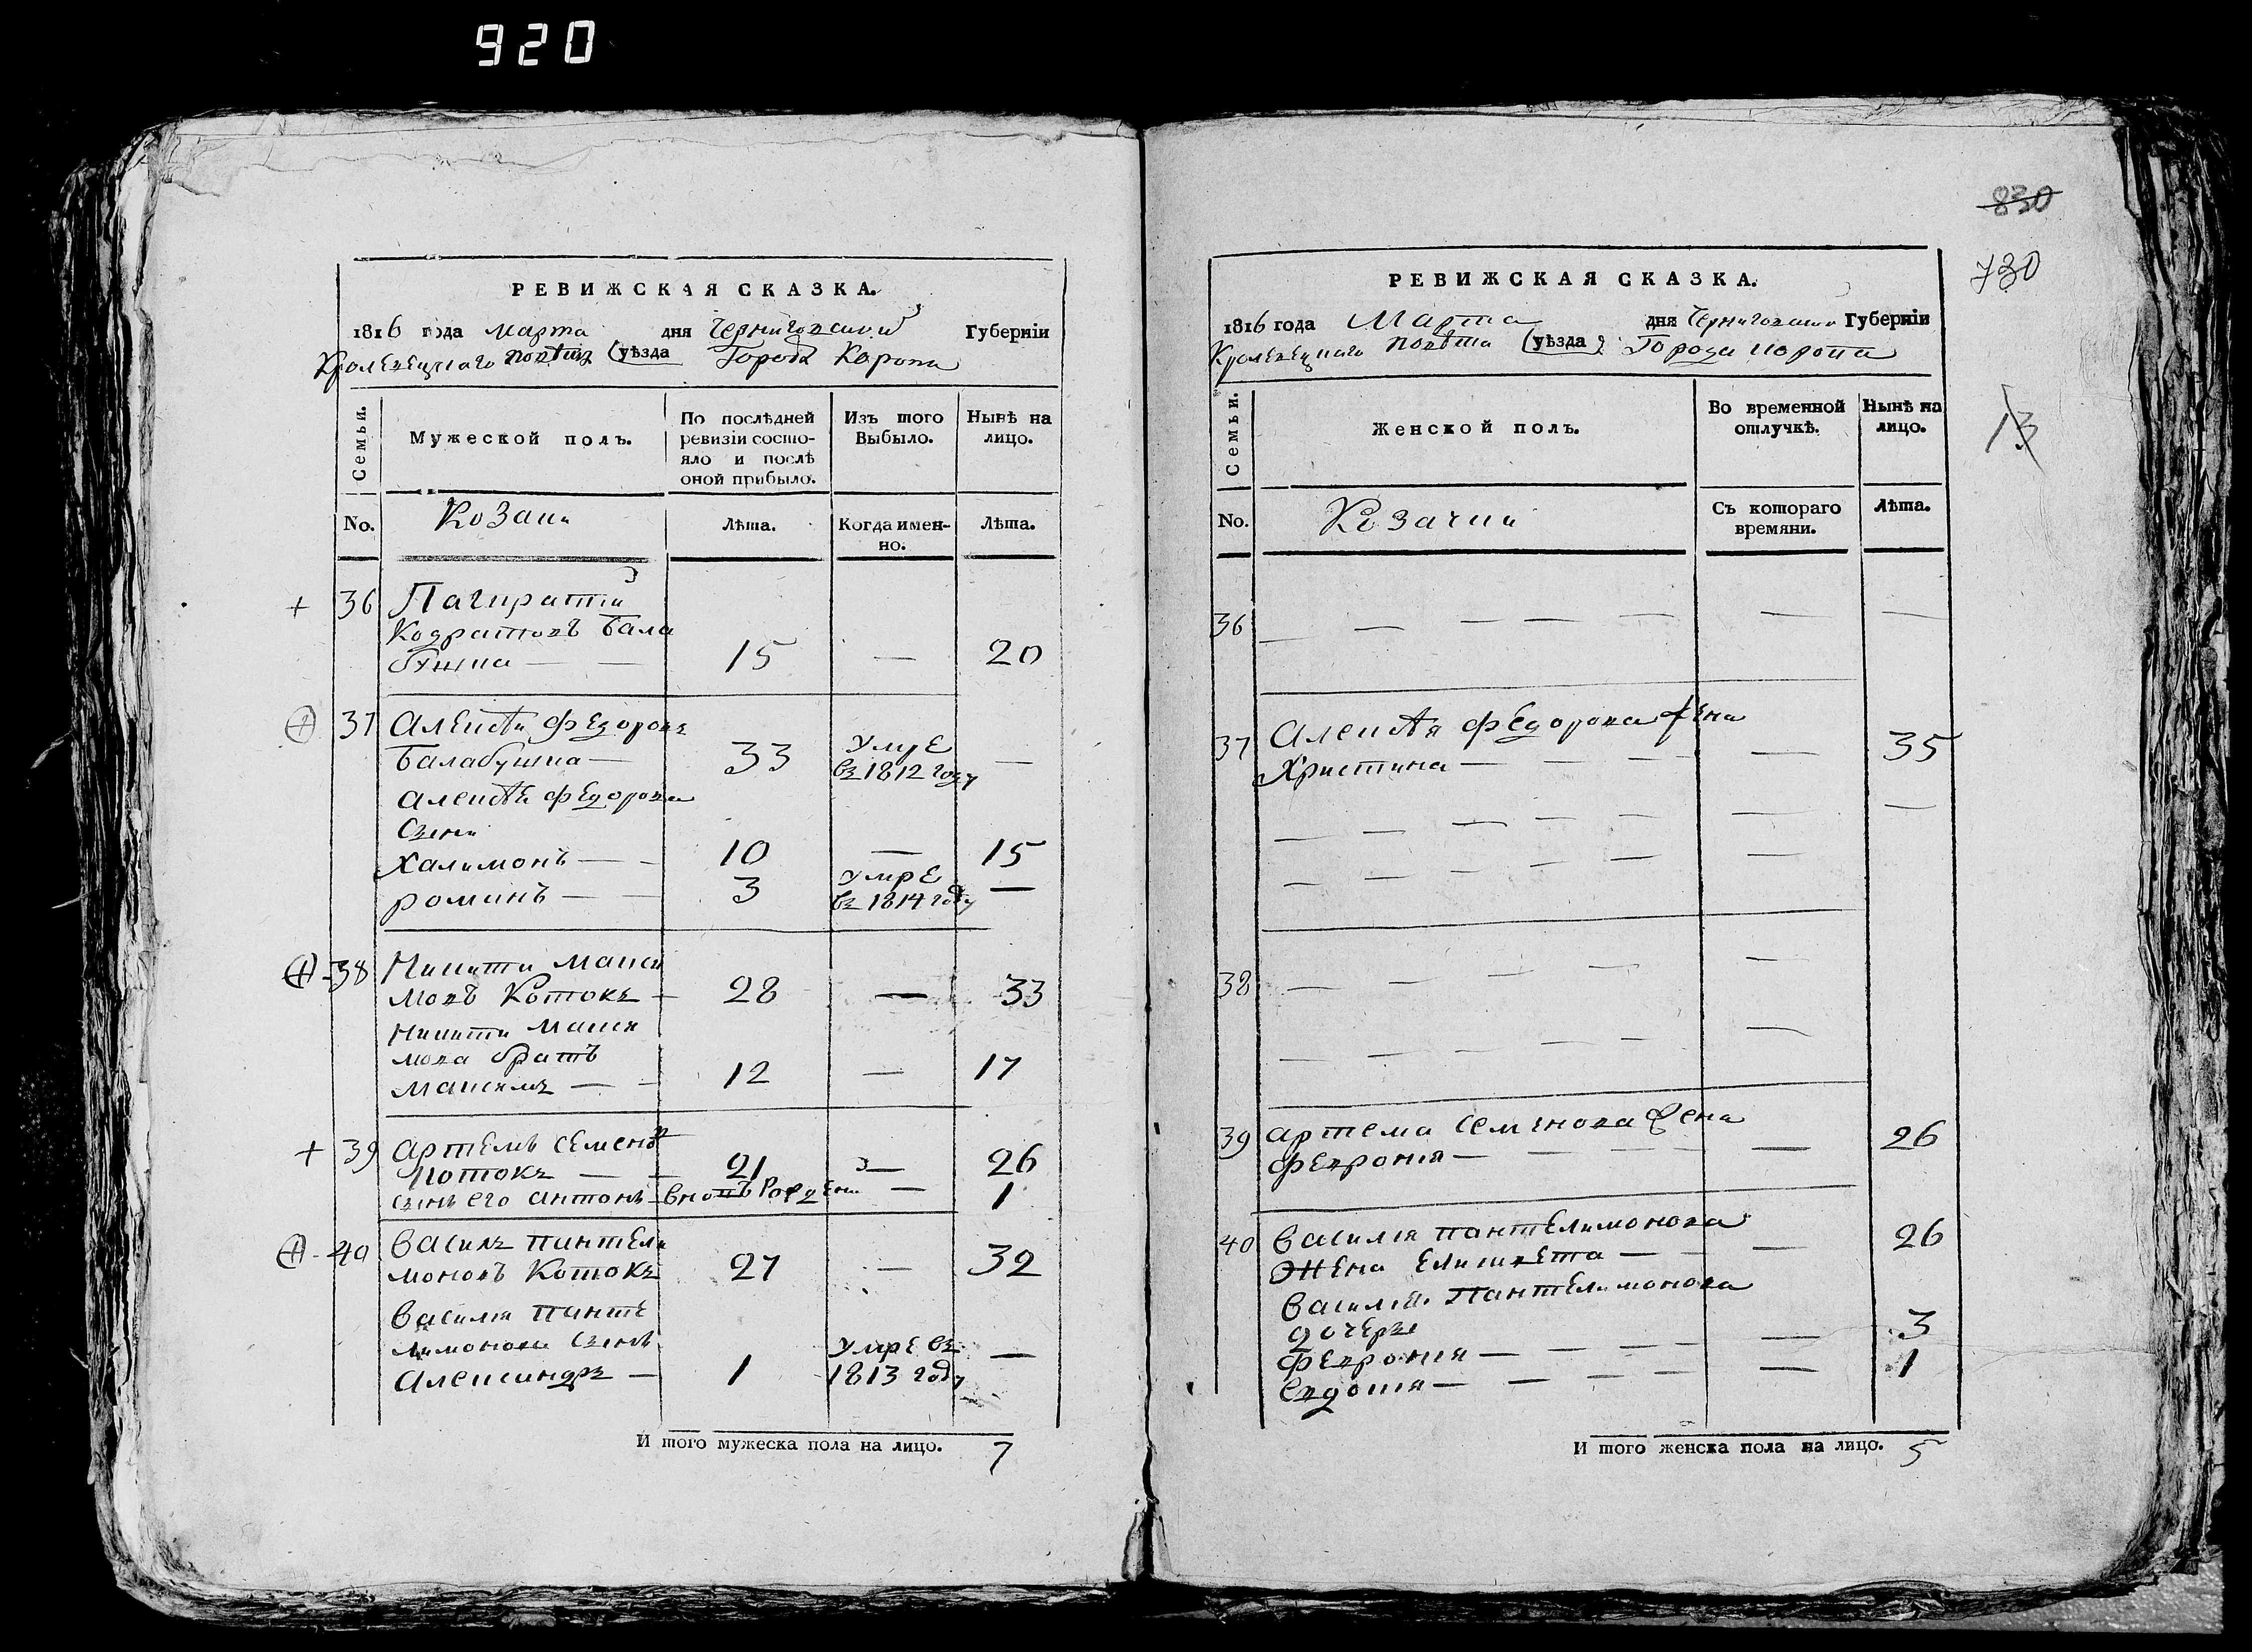 920
РЕВИЖСКАЯ СКАЗКА.
1816 года марта дня Черниговской Губерніи
Кролевецкаго повѣта (уѣзда Города Коропа
Семьи.
Мужеской полъ.
По послѣдней ревизіи состо-яло и послѣ оной прибыло.
Изъ того Выбыло.
Нынѣ на лицо.
No.
Козаки
Лѣта.
Когда имен-но.
Лѣта.
+ 36 Панкратий
Кодратовъ Бала
бушка — — 15 — 20
37 Алексѣй Федоровъ
Балабушка — 33 умре въ 1812 году —
Алексѣя Федорова
сыны
Халимонъ — — 10 — 15
романъ — — 3 умре въ 1814 году —
38 Никита Макси
мовъ Котокъ — 28 — 33
Никиты Макси
мова братъ
Максимъ — — 12 — 17
+ 39 Артемъ Семеновъ
Котокъ — — 21 — 26
сынъ его Антонъ — вновь рожденъ — 1
40 Василь Пантели
моновъ Котокъ 27 — 32
Василія Панте
лимонова сынъ
Александръ — 1 умре въ 1813 году —
И того мужеска пола на лицо. 7
830
730
13
РЕВИЖСКАЯ СКАЗКА.
1816 года Марта дня Черниговской Губерніи
Кролевецкаго повѣта (уѣзда) Города Коропа
Семьи.
Женской полъ.
Во временной отлучкѣ.
Нынѣ на лицо.
No.
Козачки
Съ котораго времяни.
Лѣта.
36 — — — — — — —
37 Алексѣя Федорова жена
Христина — — — — 35
— — — — — — —
— — — — — —
38 — — — — —
— — — — — —
39 Артема Семенова жена
Феврония — — — — — 26
40 Василия Пантелимонова
жена Елисавета — — — 26
Василия Пантелимонова
дочери
Феврония — — — — — 3
Евдокия — — — — — 1
И того женска пола на лицо. 5